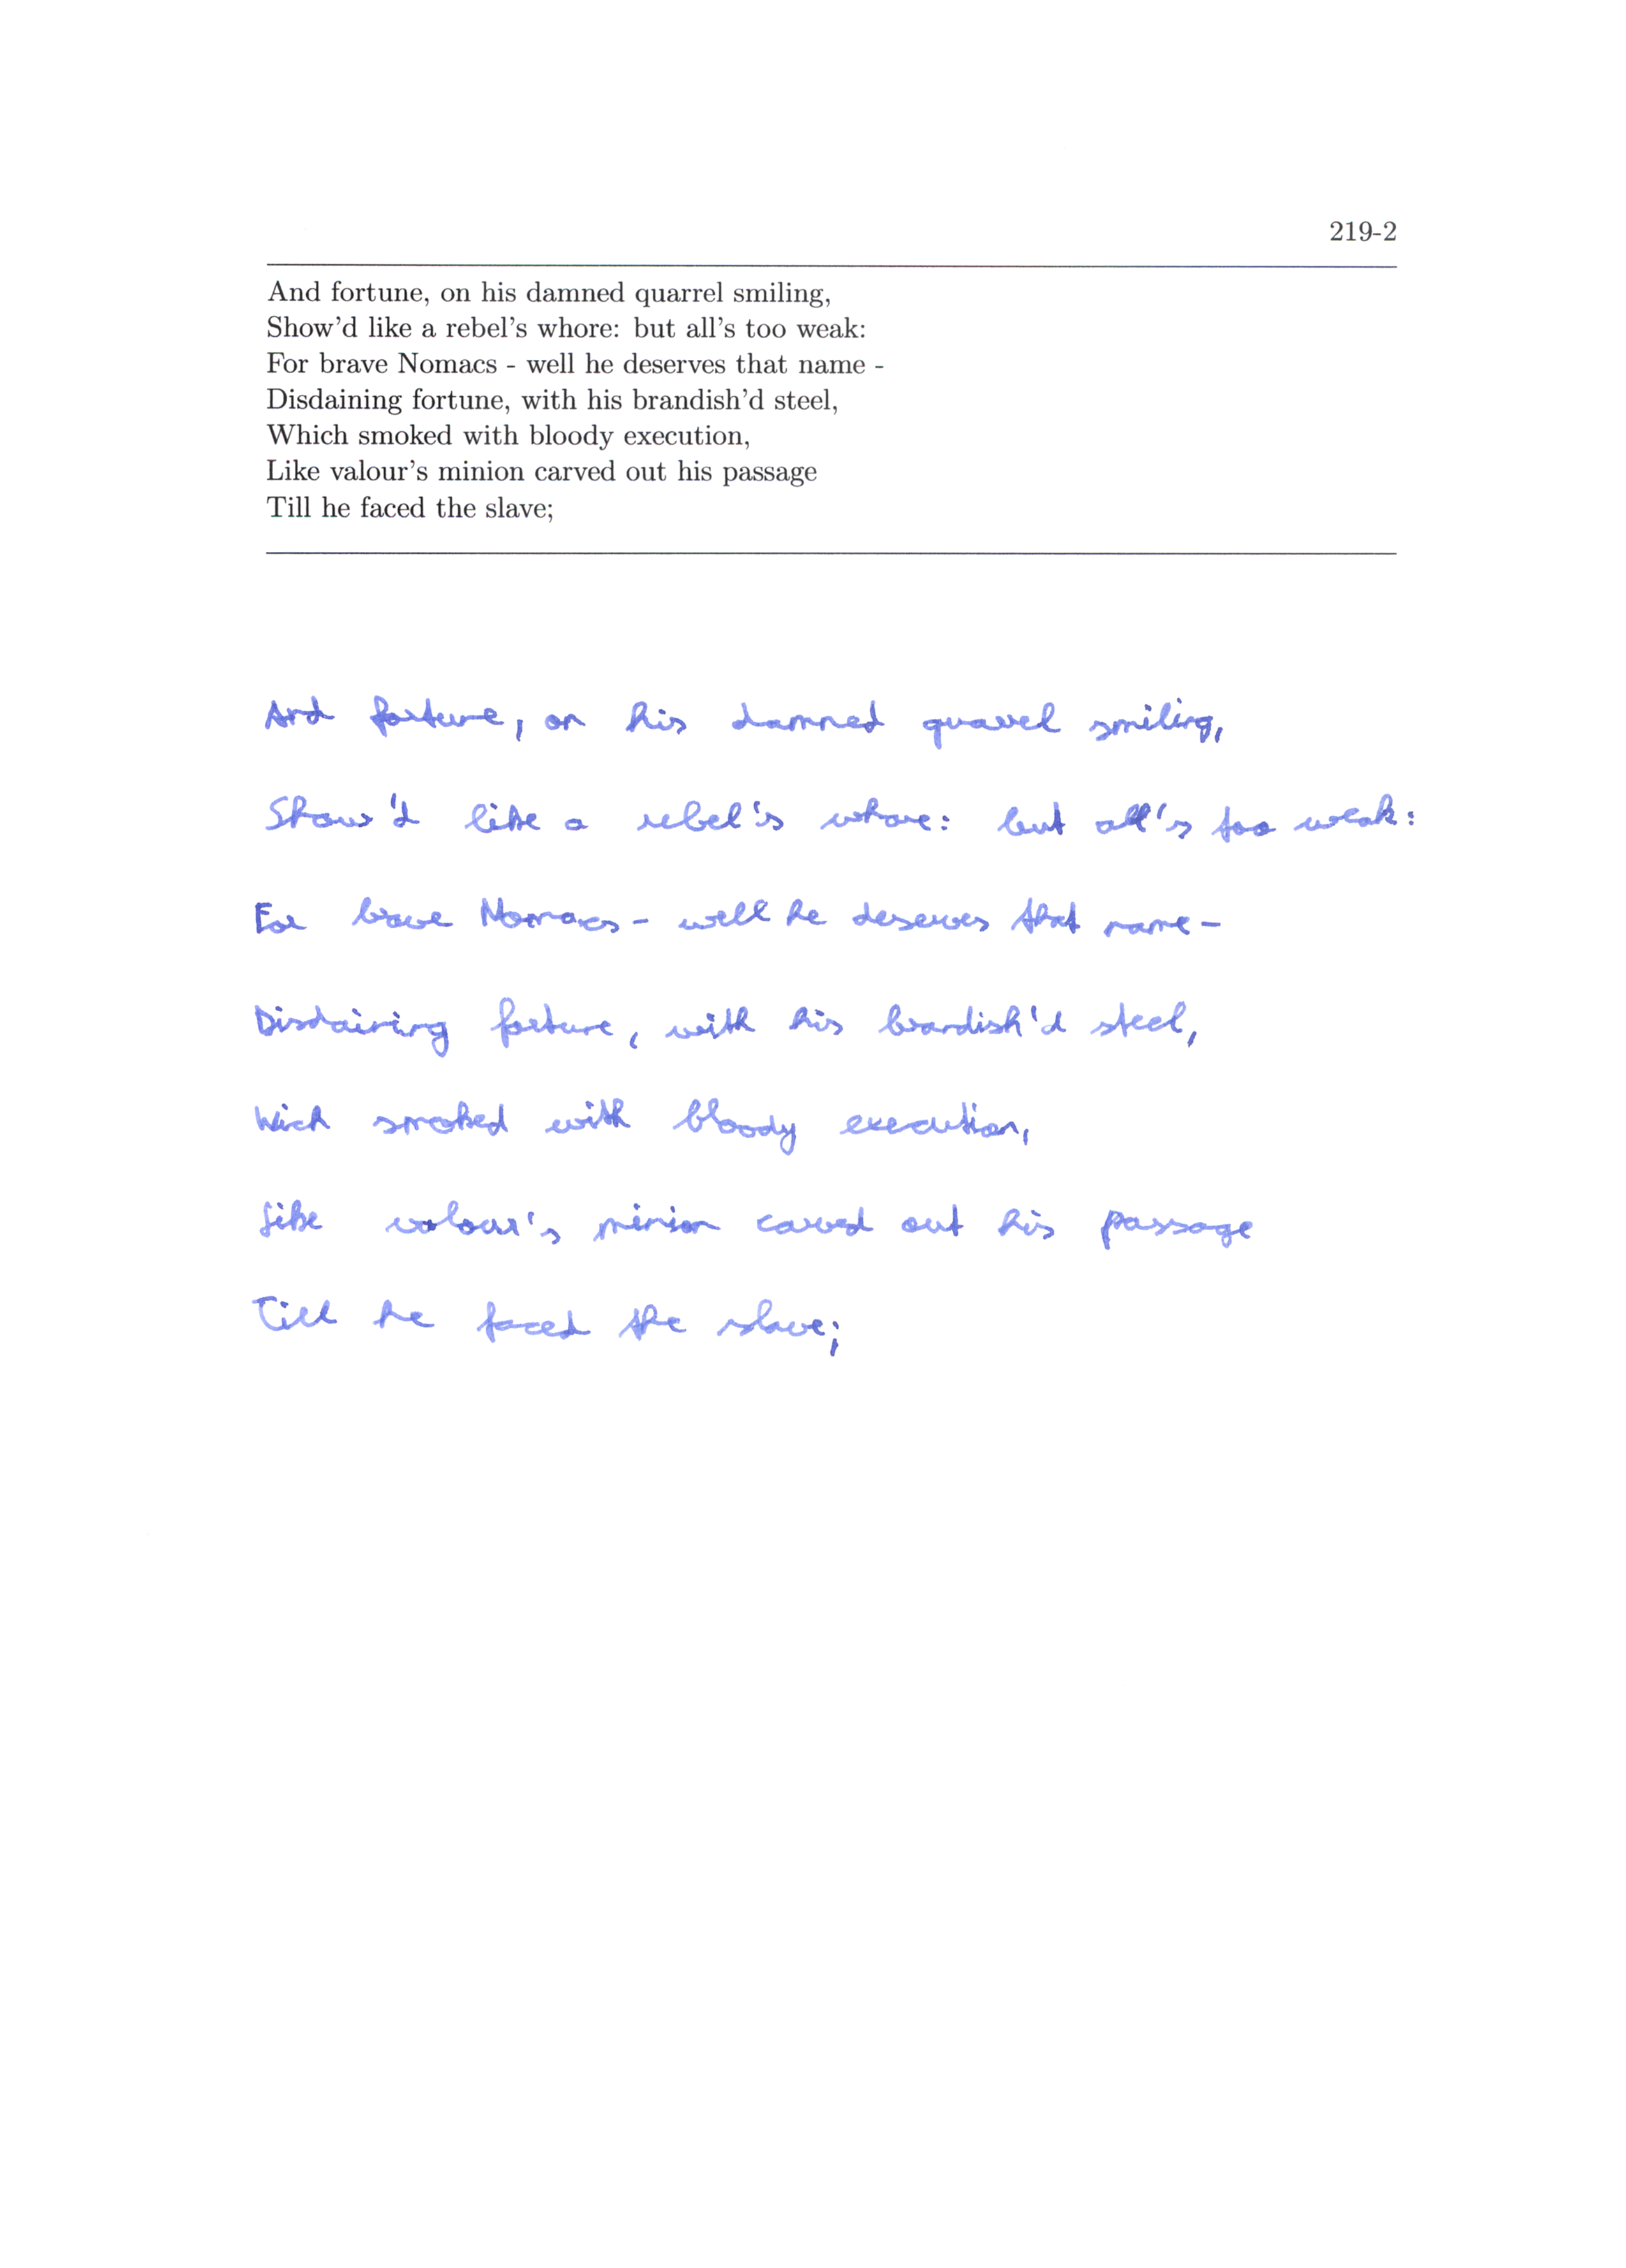 219-2
And fortune, on his damned quarrel smiling,
Show'd like a rebel's whore: but all's too weak:
For brave Nomacs - well he deserves that name -
Disdaining fortune, with his brandish'd steel,
Which smoked with bloody execution,
Like valour's minion carved out his passage
Till he faced the slave;
And fortune, on his damned quarrel smiling,
Show'd like a rebel's whore: but all's too weak:
For brave Nomacs - well he deserves that name -
Disdaining fortune, with his brandish'd steel,
Wich smoked with bloody execution,
Like valour's minion carved out his passage
Till he faced the slave;